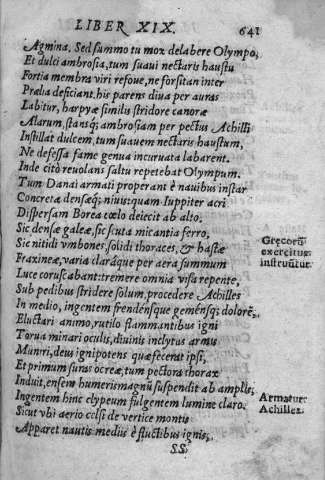 LIBER XIX. 641
Agmina, Sed summo tu mox delabere Olympo,
Et dulci ambrosia, tum suaui nectaris haustu
Fortia membra viri refoue, ne forsitan inter
Prælia deficiant. his parens diua per auras
Labitur, harpyæ similis stridore canoræ
Alarum, stansq́; ambrosiam per pectus Achilli
Instillat dulcem, tum suauem nectaris haustum,
Ne defessa fame genua incuruata labarent.
Inde citò reuolans saltu repetebat Olympum.
Tum Danai armati properant è nauibus instar
Concretæ densæq́; niuis: quam Iuppiter acri
Dispersam Borea cœlo deiecit ab alto.
Sic densæ galeæ, sic scuta micantia ferro,
Sic nitidi vmbones, solidi thoraces, & hastæ
Fraxineæ, varia claráque per aera summum
Luce coruscabant: tremere omnia visa repente,
Sub pedibus stridere solum, procedere Achilles
In medio, ingentem frendensque gemensq́; dolorē,
Eluctari animo, rutilo flammantibus igni
Torua minari oculis, diuinis inclytus armis
Muniri, deus ignipotens quæ fecerat ipsi,
Et primùm suras ocreæ, tum pectora thorax
Induit, ensem humeris magnū suspendit ab amplis,
Ingentem hinc clypeum fulgentem lumine claro.
Sicut vbi aerio celsi de vertice montis
Apparet nautis mediis è fluctibus ignis,
SS
Græcorū
exercitus
instruūtur.
Armaturæ
Achilles.